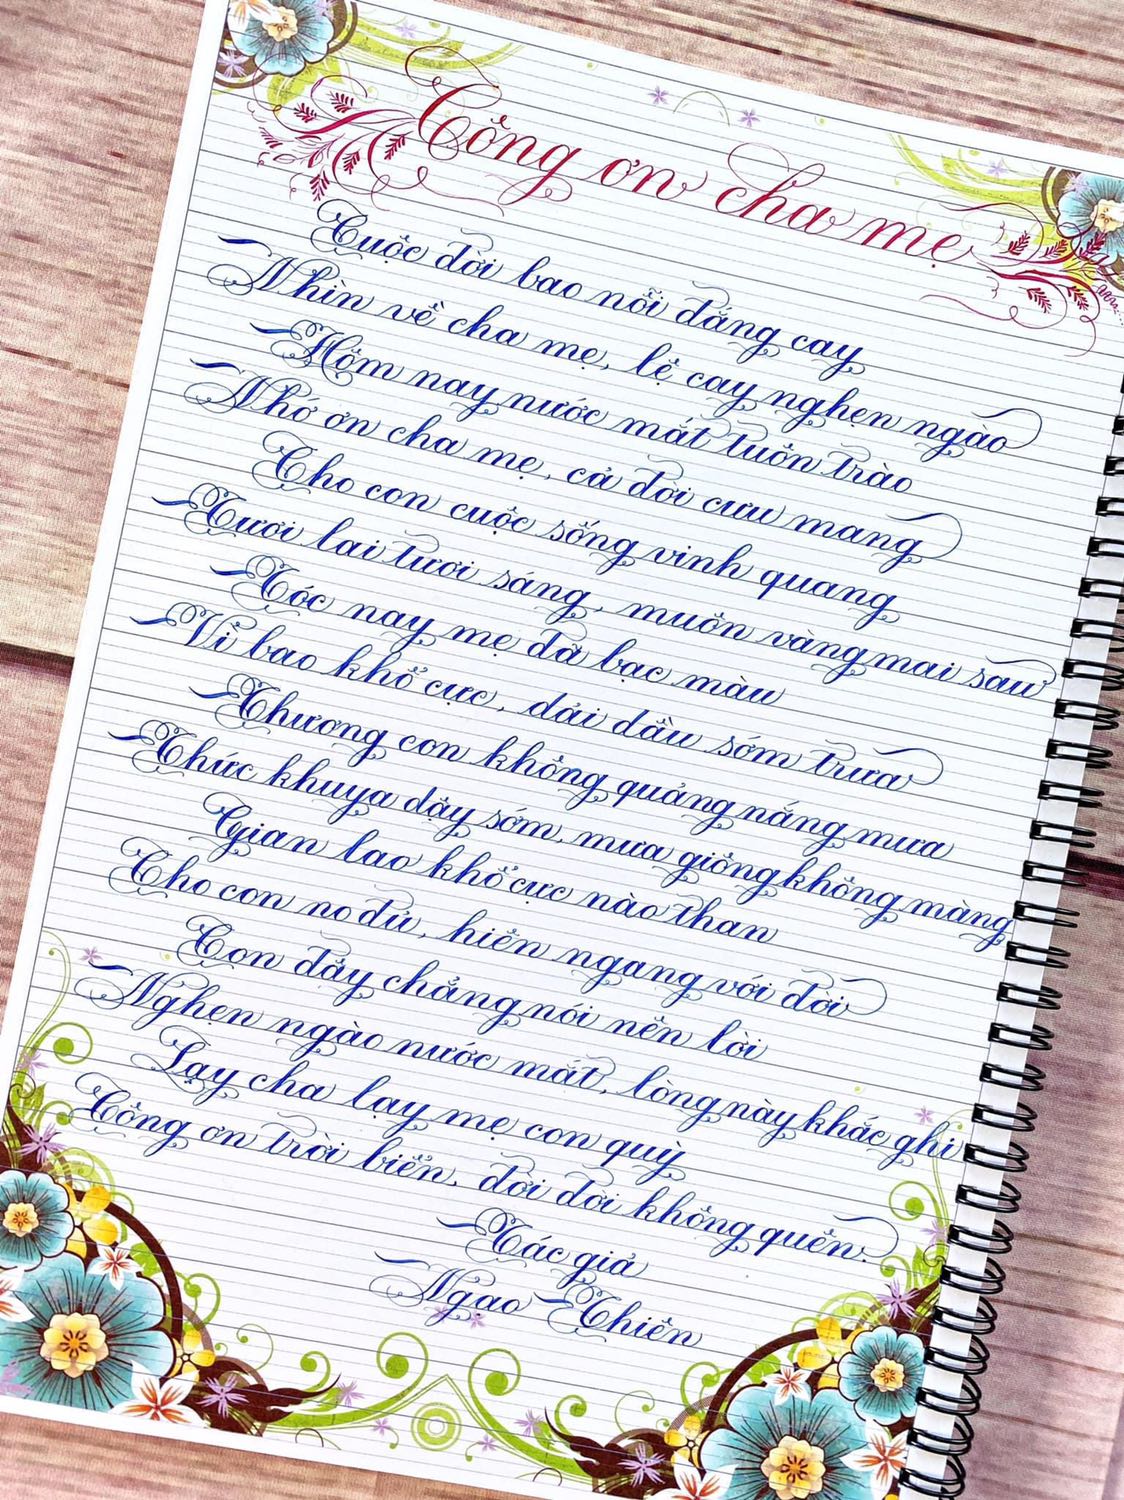 Công ơn cha mẹ
Cuộc đời bao nỗi đắng cay
Nhìn về cha mẹ, lệ cay nghẹn ngào
Hôm nay nước mắt tuôn trào
Nhớ ơn cha mẹ, cả đời cưu mang
Cho con cuộc sống vinh quang
Tươi lai tươi sáng, muôn vàng mai sau
Tóc nay mẹ đã bạc màu
Vì bao khổ cực, dải dầu sớm trưa
Thương con không quảng nắng mưa
Thức khuya dậy sớm, mưa giông không màng
Gian lao khổ cực nào than
Cho con no đủ, hiên ngang với đời
Con đây chẳng nói nên lời
Nghẹn ngào nước mắt, lòng này khắc ghi
Lạy cha lạy mẹ con quỳ
Công ơn trời biển, đời đời không quên.
Tác giả
Ngạo Thiên